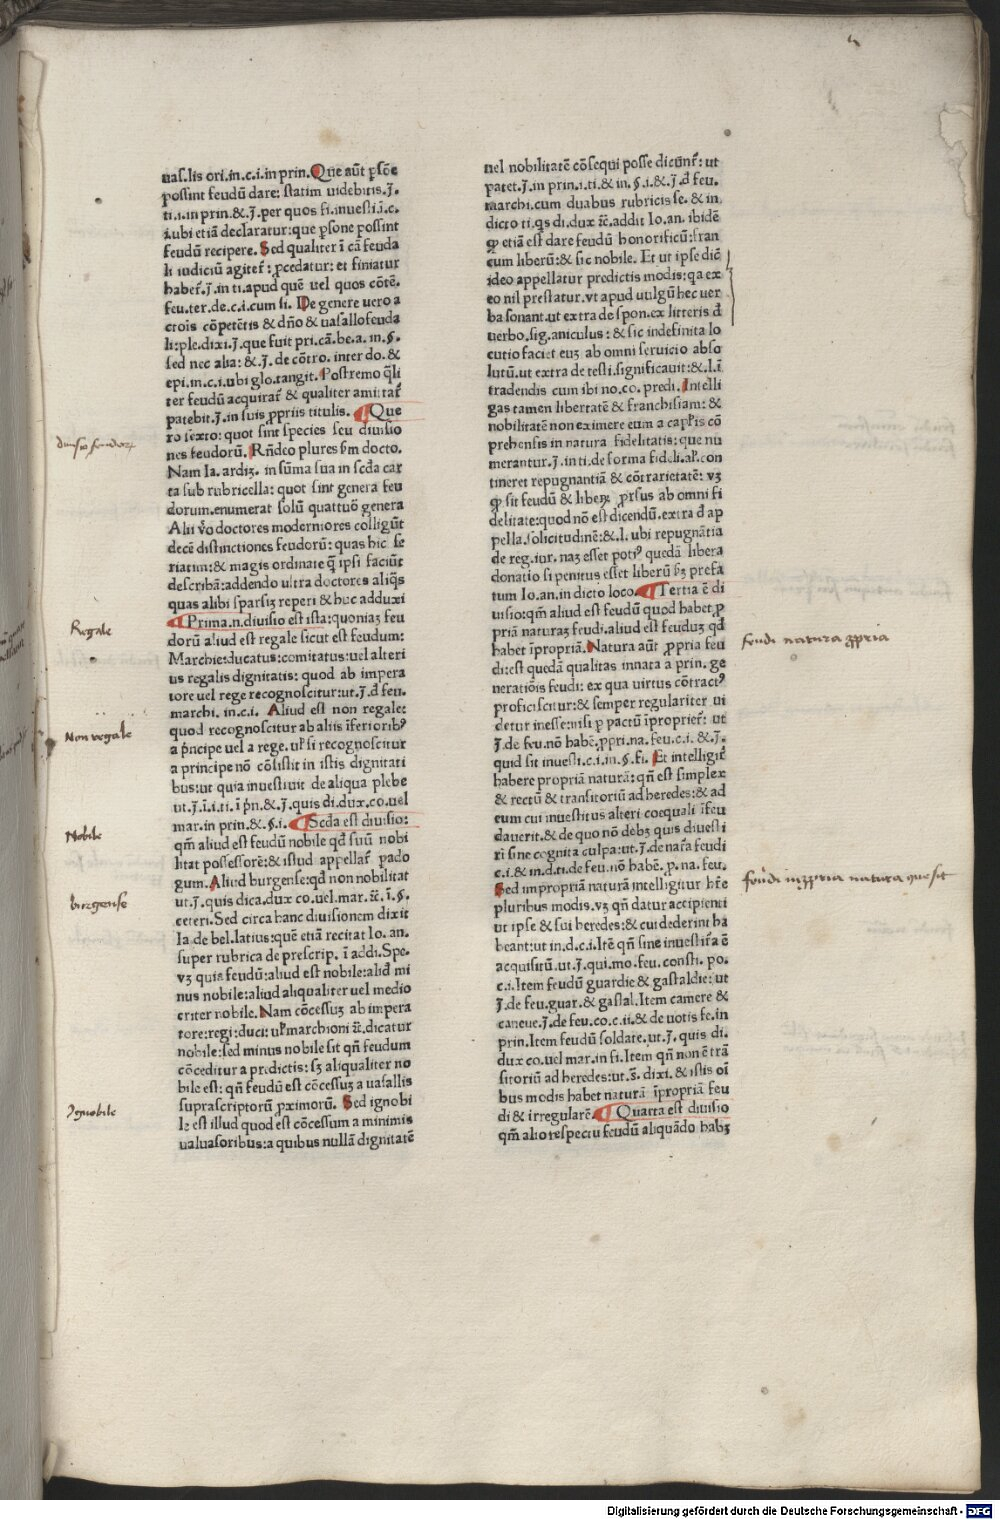 uas.lis ori.in.c.i.in prin. Que aūt psōe
possint feudū dare: statim uidebitis.J.
ti.i.in prin.&.J.per quos fi.inuesti.ī.c.
i.ubi etiā declaratur:que psone possint
feudū recipere. Sed qualiter ī cā feuda
li iudiciū agitet̄: pcedatur: et finiatur
habet̄.J.in ti.apud quē uel quos cōtē.
feu.ter.de.c.i.cum si. De genere uero a
ctois cōpetētis & dn̄o & uasallo feuda
li:ple.dixi.J.que fuit pri.cā.be.a.in.§.
sed nec alia: &.J. de cōtro. inter do. &
epi.in.c.i.ubi glo.tangit. Postremo q̄li
ter feudū acquirat̄ & qualiter amittat̄
patebit.J.in suis ppriis titulis. ¶ Que
ro sexto: quot sint species seu diuisio
nes feudorū. Rn̄deo plures s̄m docto.
Nam Ia. ardiz. in sūma sua in scd̄a car
ta sub rubricella: quot sint genera feu
dorum.enumerat solū quattuō genera
Alii v̄o doctores moderniores colligūt
decē distinctiones feudorū: quas hic se
riatim:& magis ordinate q̄ ipsi faciūt
describā:addendo ultra doctores aliq̄s
quas alibi sparsiʒ reperi & huc adduxi
¶ Prima.n.diuisio est ista:quoniaʒ feu
dorū aliud est regale sicut est feudum:
Marchie:ducatus:comitatus:uel alteri
us regalis dignitatis: quod ab impera
tore uel rege recognoscitur:ut.J.d̄ feu.
marchi. in.c.i. Aliud est non regale:
quod recognoscitur ab aliis īferioribꝰ
a pncipe uel a rege. ul̄ si recognoscitur
a principe nō cōsistit in istis dignitati
bus:ut quia inuestiuit de aliqua plebe
ut.J.ī.i.ti.ī pn̄.&.J.quis di.dux.co.uel
mar.in prin.&.§.i. ¶ Scd̄a est diuisio:
qm̄ aliud est feudū nobile qd̄ suū nobi
litat possessorē:& istud appellat̄ pado
gum. Aliud burgense:qd̄ non nobilitat
ut.J.quis dica.dux co.uel.mar. &c̄.ī.§.
ceteri.Sed circa hanc diuisionem dixit
Ia de bel.latius:quē etiā recitat Io.an.
super rubrica de prescrip. ī addi.Spe.
vʒ quia feudū:aliud est nobile:aliud̄ mi
nus nobile:aliud aliqualiter uel medio
criter nobile. Nam cōcessuʒ ab impera
tore:regi:duci: ul̄ marchioni &c̄.dicatur
nobile:sed minus nobile sit qn̄ feudum
cōceditur a predictis: sʒ aliqualiter no
bile est: qn̄ feudū est cōcessuʒ a uasallis
suprascriptorū pximorū. Sed ignobi
le est illud quod est cōcessum a minimis
ualuasoribus:a quibus nullā dignitatē
uel nobilitatē cōsequi posse dicūnt̄: ut
patet.J.in prin.i.ti.& in.§.i.&.J.d̄ feu.
marchi.cum duabus rubricis se. & in
dicto ti.qs di.dux &c̄.addit Io.an. ibidē
qp etiā est dare feudū honorificū:fran
cum liberū:& sic nobile. Et ut ipse dic̄
ideo appellatur predictis modis:qa ex
eo nil prestatur.vt apud uulgū hec uer
ba sonant.ut extra de spon.ex litteris d̄
uerbo.sig.aniculus: & sic indefinita lo
cutio faciet euʒ ab omni seruicio abso
lutū.ut extra de testi.significauit:&.l.ī
tradendis cum ibi no.co. predi. Intelli
gas tamen libertatē & franchisiam: &
nobilitatē non eximere eum a capl̄is cō
prehensis in natura fidelitatis: que nu
merantur.J.in ti.de forma fideli.al̄.con
tineret repugnantiā & cōtrarietatē: vʒ
qp sit feudū & liberʒ prsus ab omni fi
delitate:quod nō est dicendū.extra d̄ ap
pella.solicitudinē:&.l. ubi repugnātia
de reg.iur. naʒ esset potiꝰ quedā libera
donatio si penitus esset liberū s̄ʒ prefa
tum Io.an.in dicto loco. ¶ Tertia ē di
uisio:qm̄ aliud est feudū quod habet p
priā naturaʒ feudi.aliud est feuduʒ qd̄
habet īpropriā. Natura aūt ppria feu
di:est quedā qualitas innata a prin. ge
nerationis feudi: ex qua virtus cōtractꝰ
proficiscitur:& semper regulariter ui
detur inesse:nisi p pactū ipropriet̄: ut
J.de feu.nō habē.ppri.na.feu.c.i. &.J.
quid sit inuesti.c.i.in.§.fi. Et intelligit̄
habere propriā naturā: qn̄ est simplex
& rectū & transitoriū ad heredes:& ad
eum cui inuestitus alteri coequali īfeu
dauerit.& de quo nō debʒ quis diuesti
ri sine cognita culpa:ut.J.de nar̄a feudi
c.i.& in.d.ti.de feu.nō habē. p. na. feu.
Sed impropriā naturā intelligitur hr̄e
pluribus modis.vʒ qn̄ datur accipienti
ut ipse & sui heredes:& cui dederint ha
beant:ut in.d.c.i.Itē qn̄ sine inuestit̄a ē
acquisitū.ut.J.qui.mo.feu.consti. po.
c.i.Item feudū guardie & gastaldie: ut
J.de feu.guar.& gastal.Item camere &
caneue.J.de feu.co.c.ii.& de uotis fe.in
prin.Item feudū soldate.ut.J. quis di.
dux co.uel mar.in fi.Item qn̄ non ē trā
sitoriū ad heredes:ut.s̄. dixi.& istis oi
bus modis habet naturā īpropriā feu
di & irregularē. ¶ Quarta est diuisio
qm̄ alio respectu feudū aliquādo habʒ
diuisio feudorum
Regale
Non regale
Nobile
burgense
Ignobile
feudi natura ppria
feudi inppria natura que sit
Digitalisierung gefördert durch die Deutsche Forschungsgemeinschaft - DFG